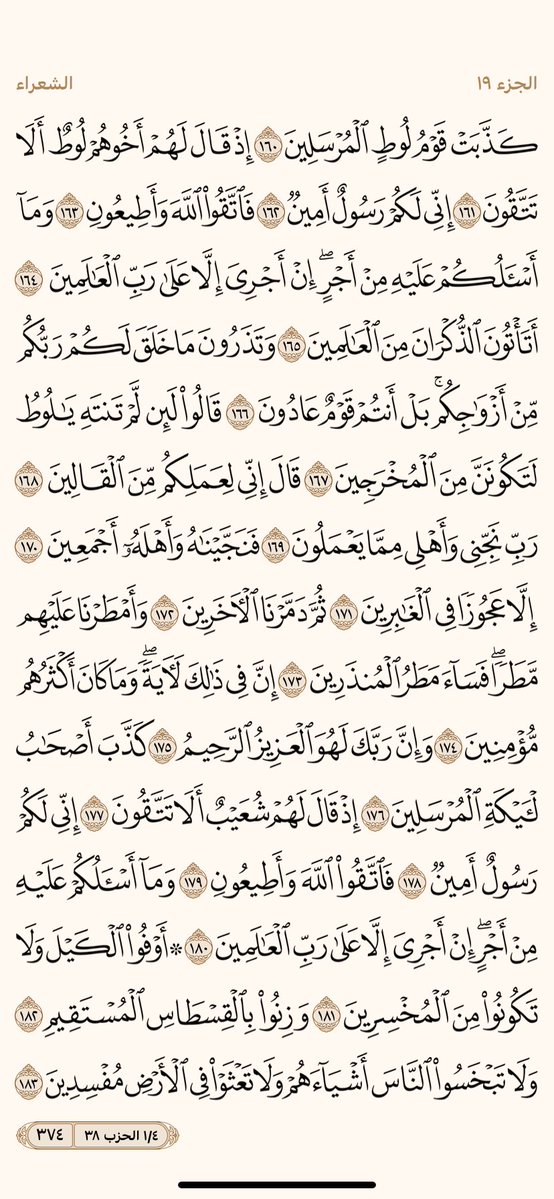 الجزء ١٩
الشعراء
كَذَّبَتْ قَوْمُ لُوطٍ ٱلْمُرْسَلِينَ ١٦٠ إِذْ قَالَ لَهُمْ أَخُوهُمْ لُوطٌ أَلَا
تَتَّقُونَ ١٦١ إِنِّي لَكُمْ رَسُولٌ أَمِينٌ ١٦٢ فَٱتَّقُوا۟ ٱللَّهَ وَأَطِيعُونِ ١٦٣ وَمَآ
أَسْـَٔلُكُمْ عَلَيْهِ مِنْ أَجْرٍ ۖ إِنْ أَجْرِىَ إِلَّا عَلَىٰ رَبِّ ٱلْعَـٰلَمِينَ ١٦٤
أَتَأْتُونَ ٱلذُّكْرَانَ مِنَ ٱلْعَـٰلَمِينَ ١٦٥ وَتَذَرُونَ مَا خَلَقَ لَكُمْ رَبُّكُم
مِّنْ أَزْوَٰجِكُم ۚ بَلْ أَنتُمْ قَوْمٌ عَادُونَ ١٦٦ قَالُوا۟ لَئِن لَّمْ تَنتَهِ يَـٰلُوطُ
لَتَكُونَنَّ مِنَ ٱلْمُخْرَجِينَ ١٦٧ قَالَ إِنِّي لِعَمَلِكُم مِّنَ ٱلْقَالِينَ ١٦٨
رَبِّ نَجِّنِي وَأَهْلِي مِمَّا يَعْمَلُونَ ١٦٩ فَنَجَّيْنَـٰهُ وَأَهْلَهُۥٓ أَجْمَعِينَ ١٧٠
إِلَّا عَجُوزًا فِي ٱلْغَـٰبِرِينَ ١٧١ ثُمَّ دَمَّرْنَا ٱلْـَٔاخَرِينَ ١٧٢ وَأَمْطَرْنَا عَلَيْهِم
مَّطَرًا ۖ فَسَآءَ مَطَرُ ٱلْمُنذَرِينَ ١٧٣ إِنَّ فِي ذَٰلِكَ لَـَٔايَةً ۖ وَمَا كَانَ أَكْثَرُهُم
مُّؤْمِنِينَ ١٧٤ وَإِنَّ رَبَّكَ لَهُوَ ٱلْعَزِيزُ ٱلرَّحِيمُ ١٧٥ كَذَّبَ أَصْحَـٰبُ
لْـَٔيْكَةِ ٱلْمُرْسَلِينَ ١٧٦ إِذْ قَالَ لَهُمْ شُعَيْبٌ أَلَا تَتَّقُونَ ١٧٧ إِنِّي لَكُمْ
رَسُولٌ أَمِينٌ ١٧٨ فَٱتَّقُوا۟ ٱللَّهَ وَأَطِيعُونِ ١٧٩ وَمَآ أَسْـَٔلُكُمْ عَلَيْهِ
مِنْ أَجْرٍ ۖ إِنْ أَجْرِىَ إِلَّا عَلَىٰ رَبِّ ٱلْعَـٰلَمِينَ ١٨٠ ۞ أَوْفُوا۟ ٱلْكَيْلَ وَلَا
تَكُونُوا۟ مِنَ ٱلْمُخْسِرِينَ ١٨١ وَزِنُوا۟ بِٱلْقِسْطَاسِ ٱلْمُسْتَقِيمِ ١٨٢
وَلَا تَبْخَسُوا۟ ٱلنَّاسَ أَشْيَآءَهُمْ وَلَا تَعْثَوْا۟ فِي ٱلْأَرْضِ مُفْسِدِينَ ١٨٣
١/٤ الحزب ٣٨
٣٧٤